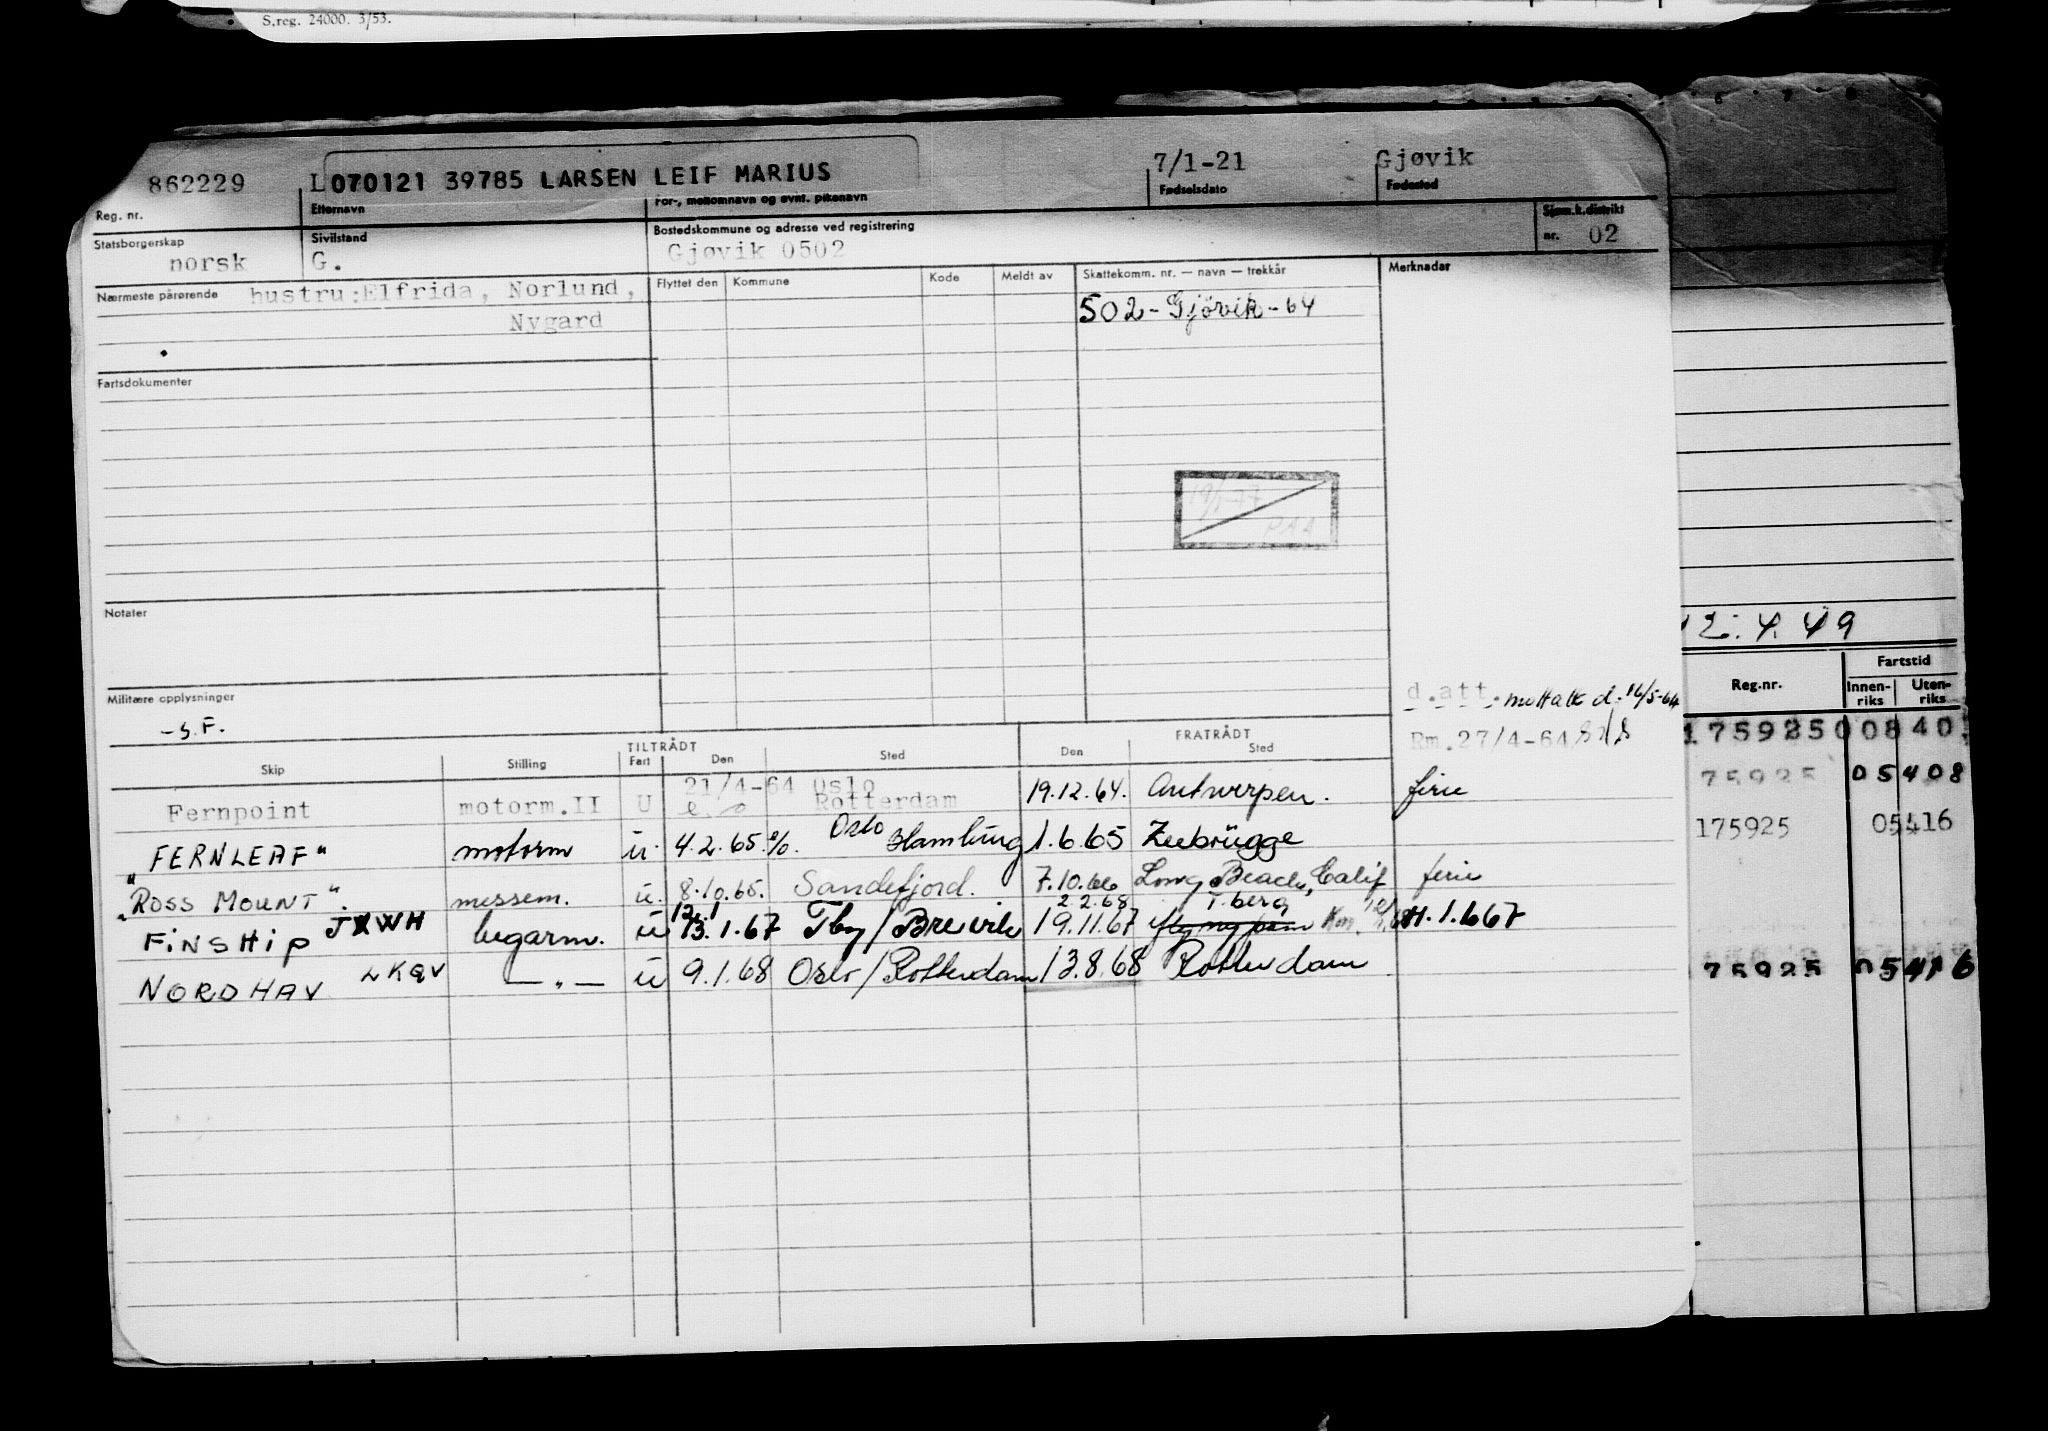 S.reg. 24000. 3/53.
862229 L070121 39785 LARSEN LEIF MARIUS 7/1-21 Gjøvik
Reg. nr. Etternavn For-, mellomnavn og evnt. pikenavn Fødselsdato Fødested
Statsborgerskap Sivilstand Bostedskommune og adresse ved registrering Sjøm.k.distrikt
norsk G. Gjøvik 0502 nr. 02
Nærmeste pårørende hustru:Elfrida, Norlund, Flyttet den Kommune Kode Meldt av Skattekomm. nr. — navn — trekkår Merknader
Nygard 502-Gjövik-64
Fartsdokumenter
Notater
12.4.49
Militære opplysninger
d.att. mottatt d. 16/5-64
-s.F.
Rm.27/4-64
Reg.nr. Fartstid
Innen-riks Uten-riks
TILTRÅDT FRATRÅDT
Skip Stilling Fart Den Sted Den Sted
21/4-64 Oslo
Fernpoint motorm.II U Rotterdam 19.12.64. Antwerpen. ferie
"FERNLEAF" motorm u. 4.2.65. Oslo Hamburg 1.6.65 Zeebrügge
"ROSS MOUNT". messem. u. 8.10.65. Sandefjord. 7.10.66 Long Beach, Calif ferie
12.1 2.2.68 T.berg
FINSHIP JXWH lugarm. u 13.1.67 Tbg/Brevik 19.11.67 H.1.667
NORDHAV LKGV —„— u 9.1.68 Oslo/Rotterdam 13.8.68 Rotterdam
1759250 08 40
75925 05408
175925 05416
75925 05416